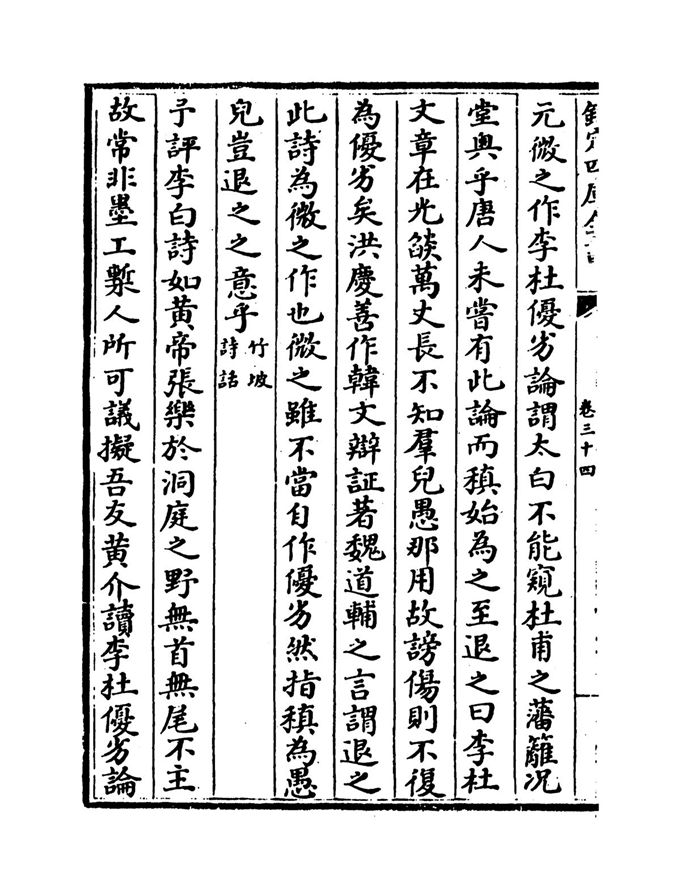 欽定四庫全書
卷三十四
元微之作李杜優劣論謂太白不能窺杜甫之藩籬况
堂奥乎唐人未嘗有此論而稹始為之至退之曰李杜
文章在光燄萬丈長不知羣兒愚那用故謗傷則不復
為優劣矣洪慶善作韓文辯証著魏道輔之言謂退之
此詩為微之作也微之雖不當自作優劣然指稹為愚
兒豈退之之意乎竹坡
詩話
予評李白詩如黄帝張樂於洞庭之野無首無尾不主
故常非墨工槧人所可議擬吾友黄介讀李杜優劣論